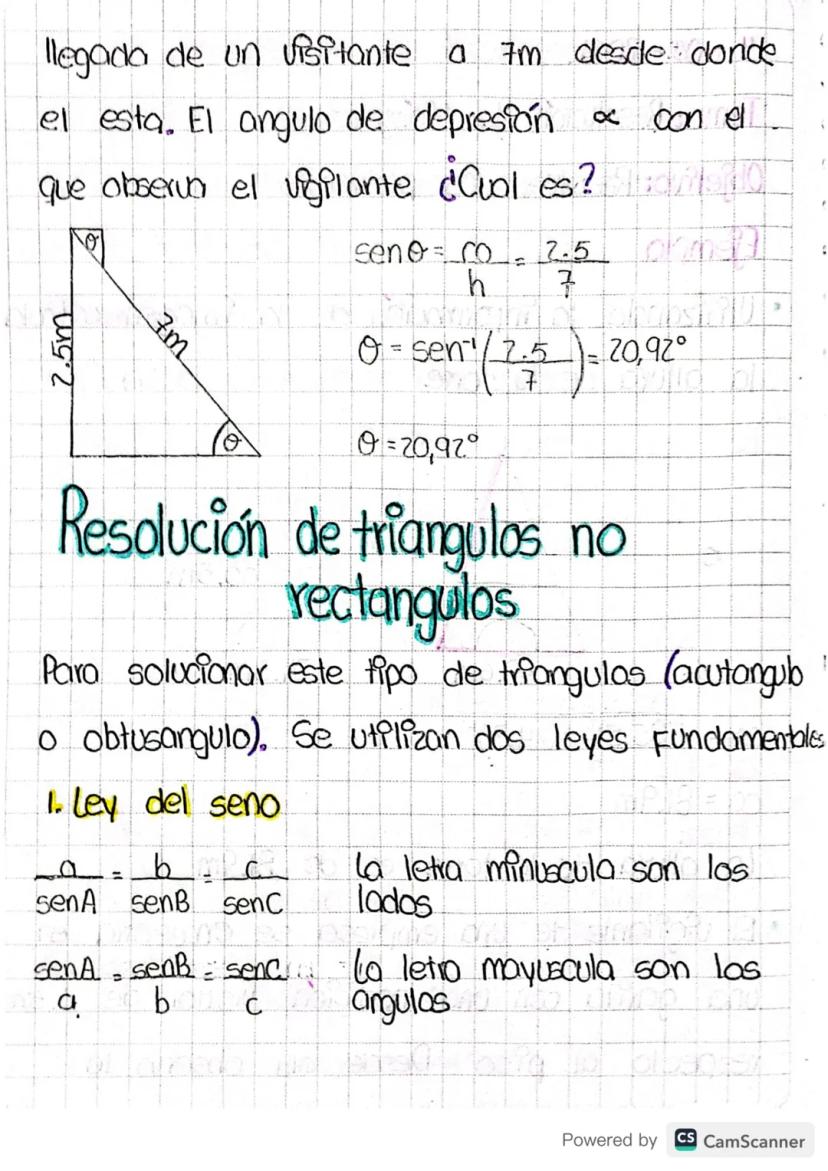 llegada de un visitante a 7m desde donde
el esta. El angulo de depresión ∝ con el
que observa el vigilante ¿Cual es?
θ
2.5m
7m
θ
senθ = co/h = 2.5/7
θ = sen⁻¹(2.5/7) = 20,92°
θ = 20,92°
Resolución de triangulos no
rectangulos
Para solucionar este tipo de triangulos (acutangulo
o obtusangulo). Se utilizan dos leyes Fundamentales
1. Ley del seno
a/senA = b/senB = c/senC
La letra minuscula son los
lados
senA/a = senB/b = senC/c
La letra mayuscula son los
angulos
Powered by CS CamScanner